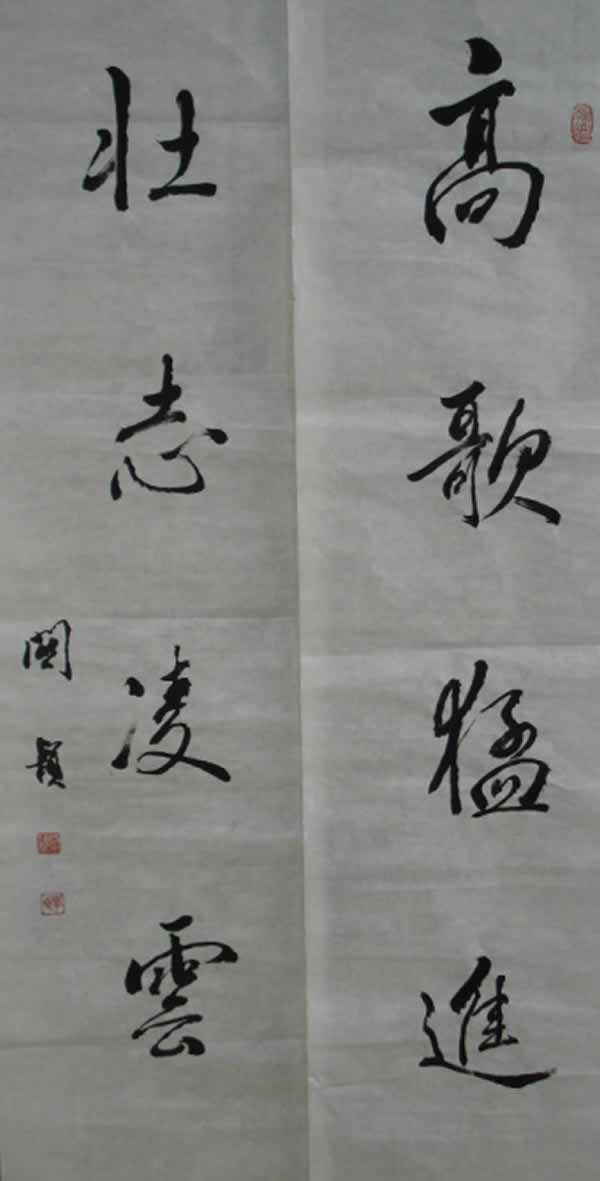 高歌猛進
壯志凌雲
關穎